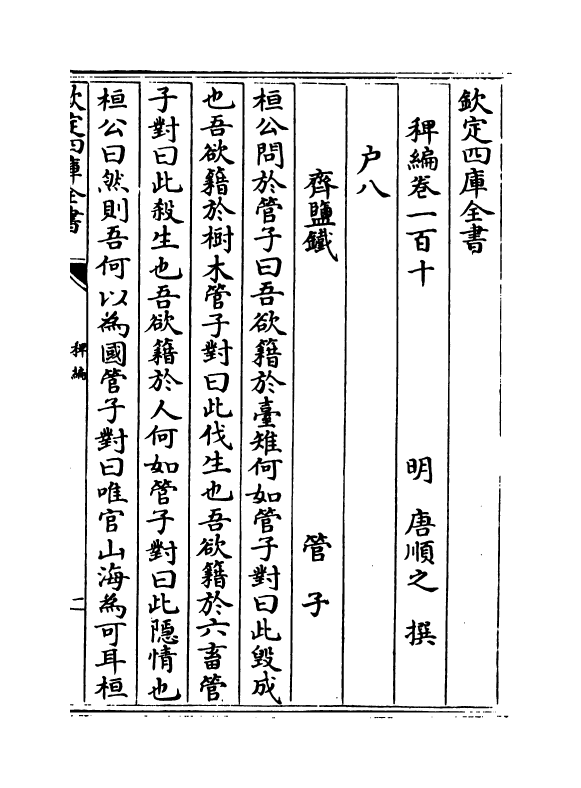 欽定四庫全書
稗編卷一百十　明　唐順之　撰
户八
齊鹽鐵　管子
桓公問於管子曰吾欲籍於臺雉何如管子對曰此毀成
也吾欲籍於樹木管子對曰此伐生也吾欲籍於六畜管
子對曰此殺生也吾欲籍於人何如管子對曰此隱情也
桓公曰然則吾何以為國管子對曰唯官山海為可耳桓
欽定四庫全書
稗編